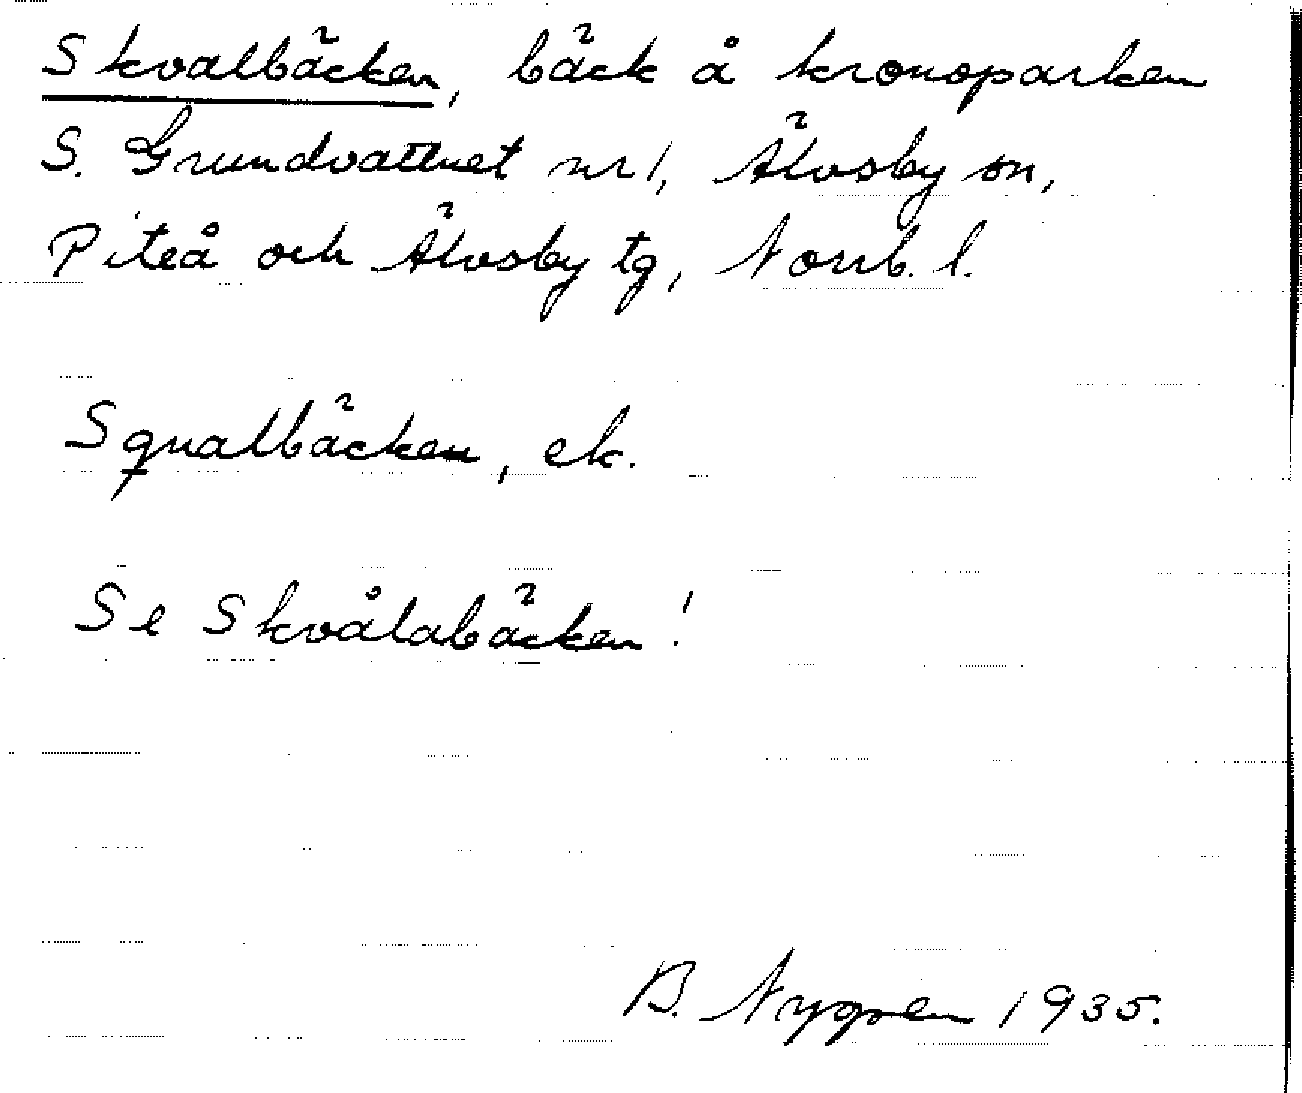 Skvalbäcken, bäck å kronoparken
S. Grundvattnet nr 1, Älvsby sn,
Piteå och Älvsby tg, Norrb. l.
Squalbäcken, ek.
Se Skvålabäcken!
B. Nygren 1935.